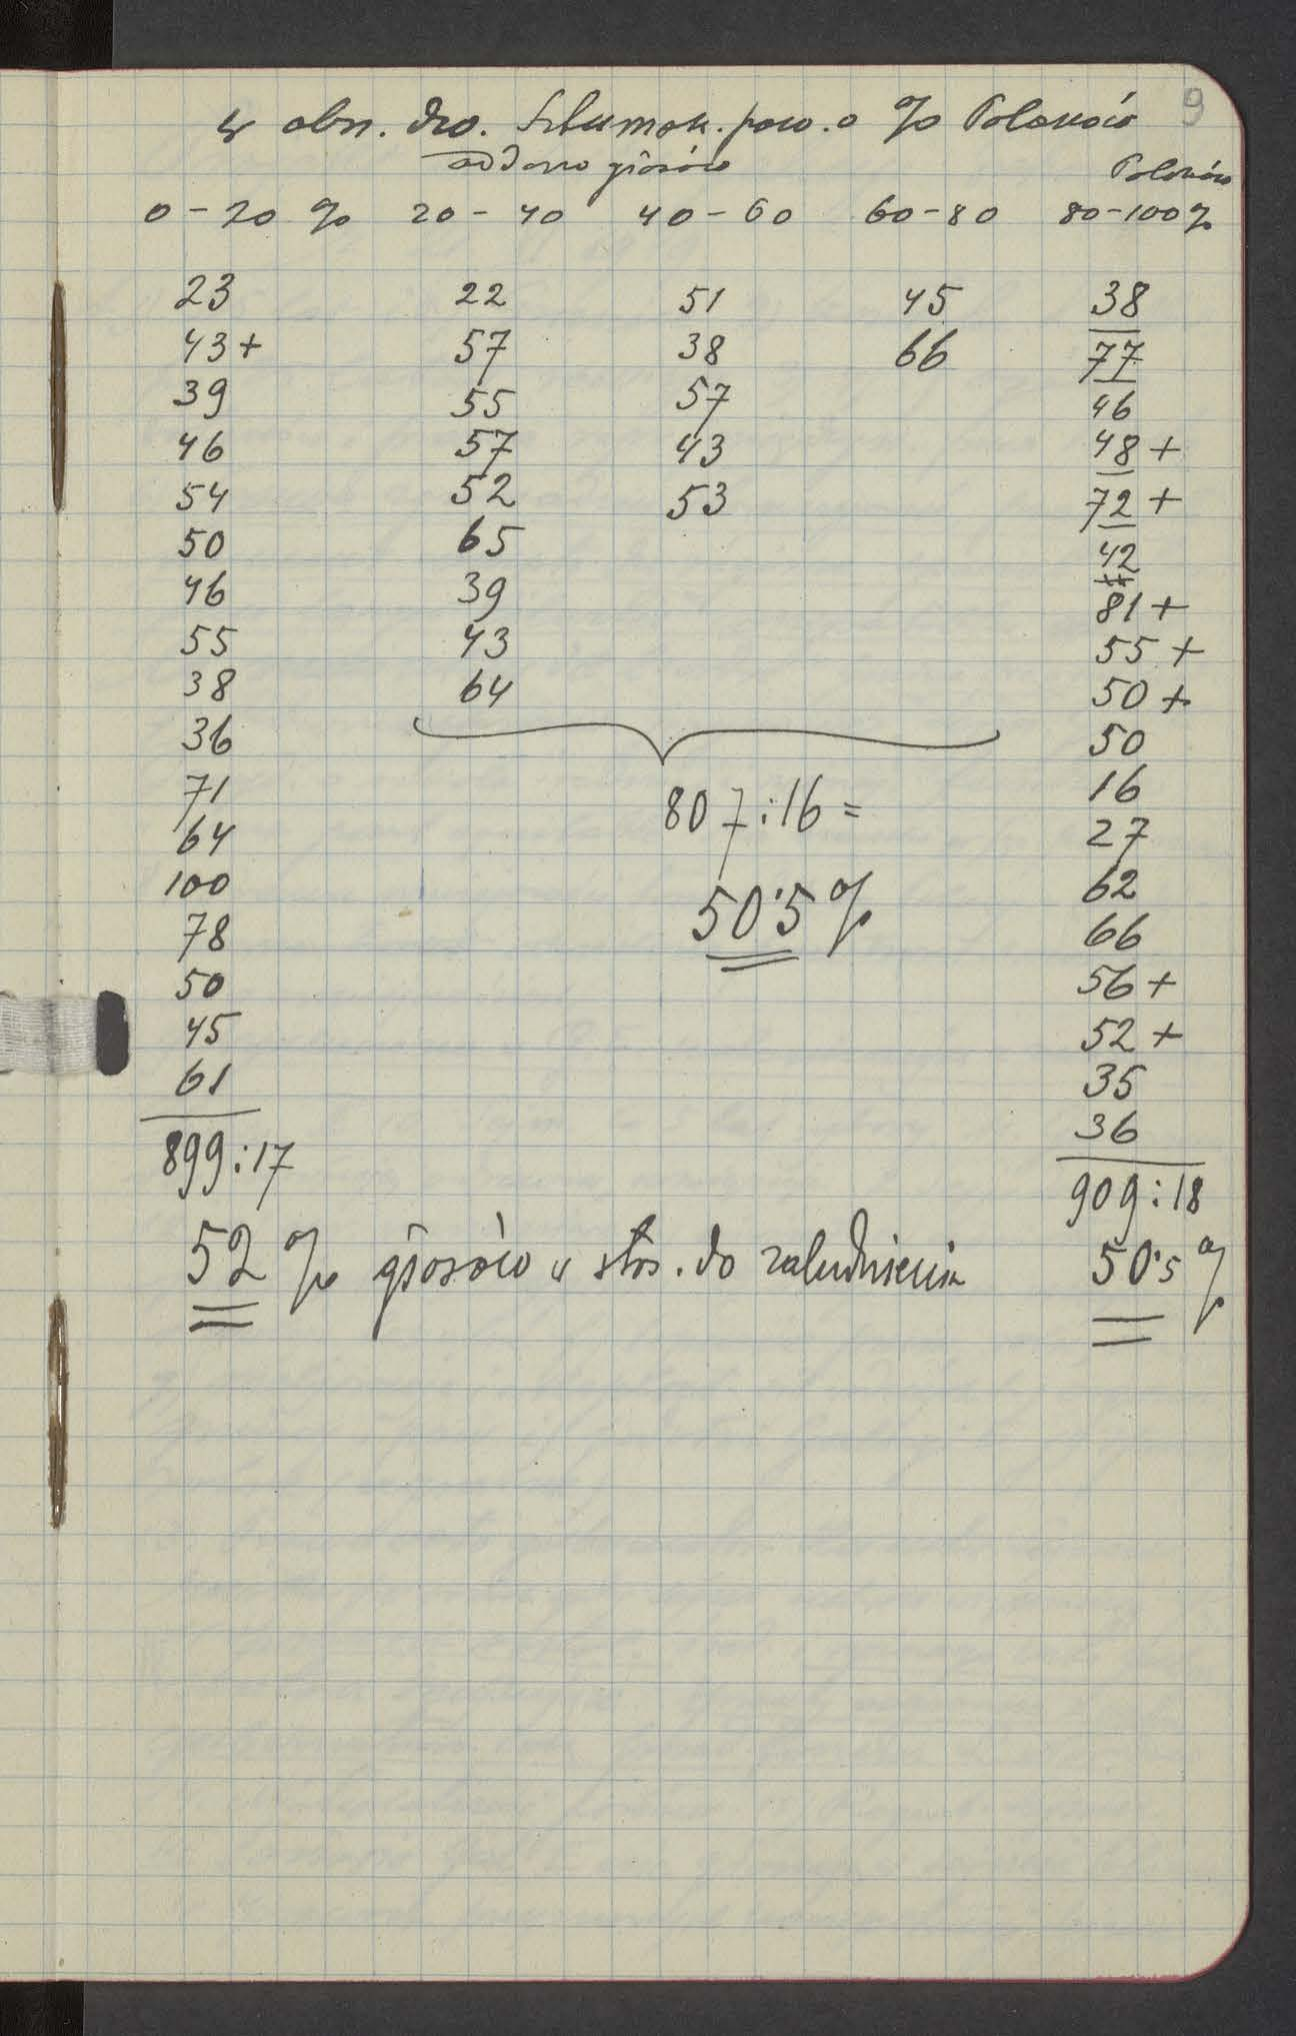 9
w obsz. dw. Sztumsk. pow. o % Polaków
oddano głosów
Polaków
0-20 % 20-40 40-60 60-80 80-100%
23 22 51 45 38
43+ 57 38 66 77
39 55 57 46
46 57 43 48+
54 52 53 72+
50 65 42
46 39 81+
55 43 55+
38 64 50+
36 50
71 16
64 27
100 62
78 66
50 56+
45 52+
61 35
36
807:16=
50·5%
899:17
909:18
52 % głosów w stos. do zaludnienia 50·5 %